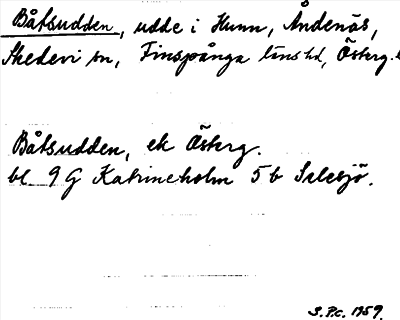 Båtsudden, udde i Hunn, Åndenäs,
Skedevi sn, Finspånga länshd, Österg.
Båtsudden, ek Österg.
bl 9 G Katrineholm 5 b
S.P.c. 1959.